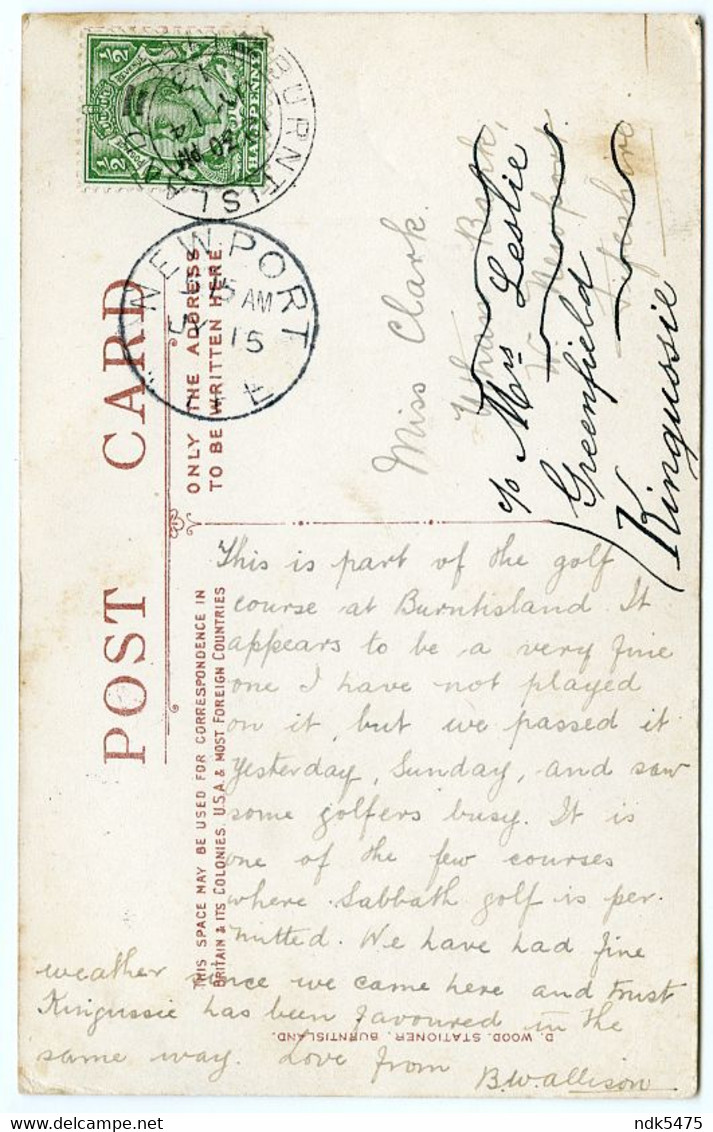 POST CARD
ONLY THE ADDRESS
TO BE WRITTEN HERE
THIS SPACE MAY BE USED FOR CORRESPONDENCE IN
BRITAIN & ITS COLONIES, U.S.A. & MOST FOREIGN COUNTRIES
BURNTISLAND
30 PM
14
HALFPENNY
½
½
NEWPORT
15 AM
JY 15
Miss Clark.
Bank,
Newport
Fifeshire
c/o Mrs Leslie
Greenfield
Kingussie
This is part of the golf
course at Burntisland. It
appears to be a very fine
one I have not played
on it, but we passed it
yesterday, Sunday, and saw
some golfers busy. It is
one of the few courses
where Sabbath golf is per-
mitted. We have had fine
weather since we came here and trust
Kingussie has been favoured in the
same way. Love from
B.W. Allison
D. WOOD, STATIONER, BURNTISLAND.
ndk5475